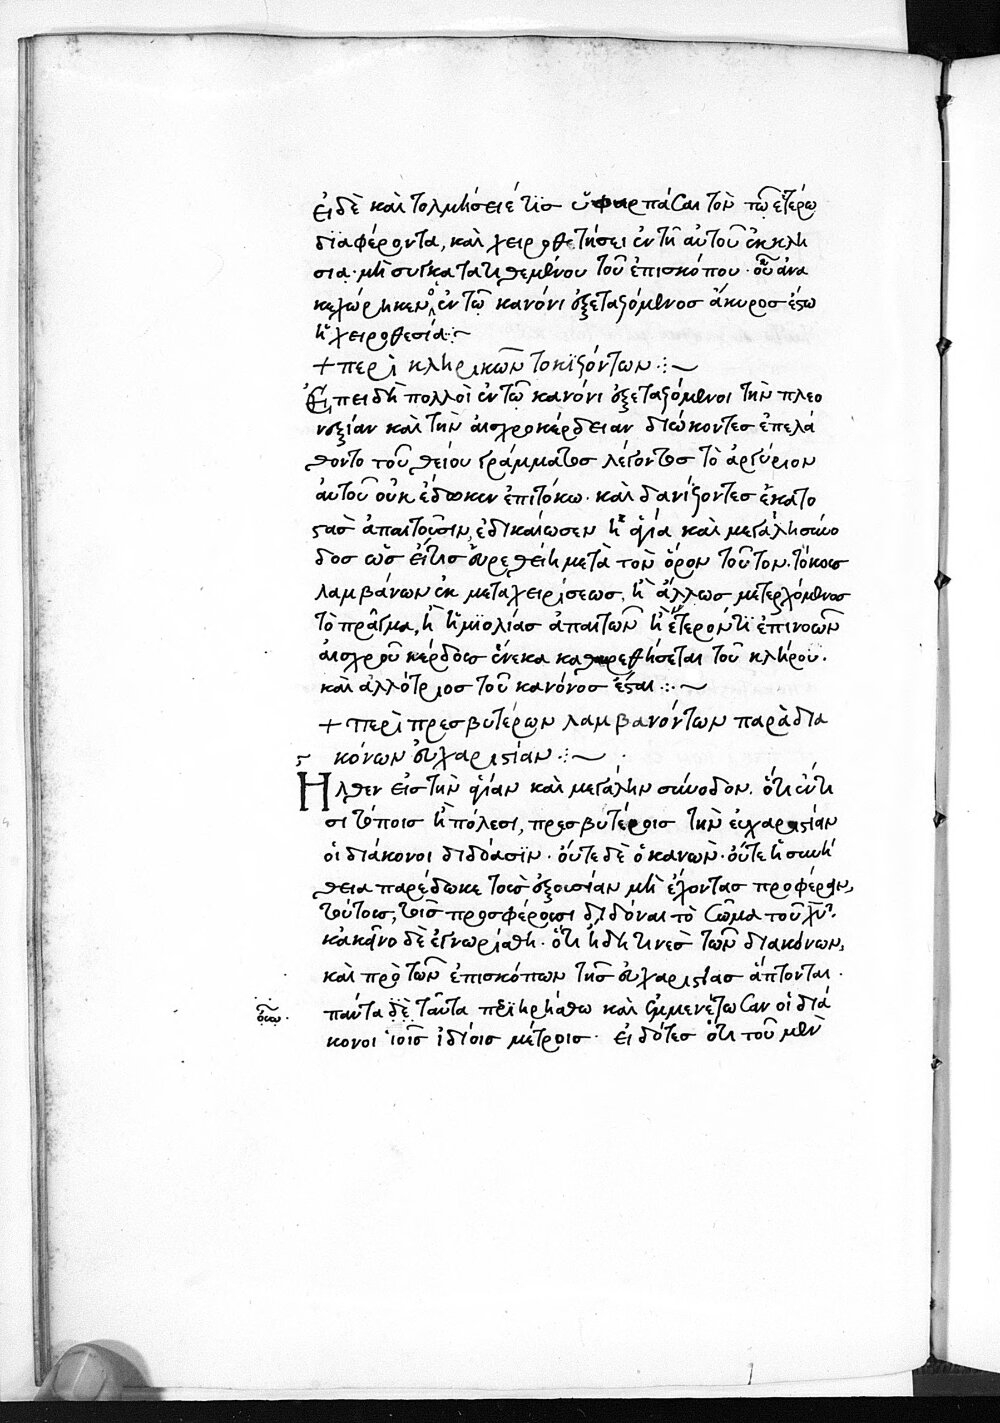 εἰ δὲ καὶ τολμήσειέ τις ὑφαρπάσαι τὸν τῷ ἑτέρῳ
διαφέροντα, καὶ χειροθετήσει ἐν τῇ αὐτοῦ ἐκκλη
σίᾳ· μὴ συγκατατιθεμένου τοῦ ἐπισκόπου· οὗ ἀνα
κεχώρηκεν ὁ ἐν τῷ κανόνι ἐξεταζόμενος ἄκυρος ἔστω
ἡ χειροθεσία:~
+ περὶ κληρικῶν τοκϊζόντων :~
Ἐπειδὴ πολλοὶ ἐν τῷ κανόνι ἐξεταζόμενοι τὴν πλεο
νεξίαν καὶ τὴν αἰσχροκέρδειαν διώκοντες ἐπελά
θοντο τοῦ θείου γράμματος λέγοντος τὸ ἀργύριον
αὐτοῦ οὐκ ἔδωκεν ἐπιτόκω· καὶ δανίζοντες ἑκατο
στὰς ἀπαιτοῦσιν, ἐδικαίωσεν ἡ ἁγία καὶ μεγάλη σύνο
δος ὡς εἴτις εὑρεθείη μετὰ τὸν ὅρον τοῦτον· τόκους
λαμβάνων ἐκ μεταχειρίσεως, ἢ ἄλλως μετερχόμενος
τὸ πρᾶγμα, ἢ ἡμιολίας ἀπαιτῶν ἢ ἕτερόν τι ἐπινοῶν
αἰσχροῦ κέρδους ἕνεκα καθαιρεθήσεται τοῦ κλήρου·
καὶ ἀλλότριος τοῦ κανόνος ἔσται :~
+ περὶ πρεσβυτέρων λαμβανόντων παρὰ δια
κόνων εὐχαριστίαν :~
Ἦλθεν εἰς τὴν ἁγίαν καὶ μεγάλην σύνοδον. ὅτι ἔν τι
σι τόποις ἢ πόλεσι, πρεσβυτέροις τὴν εὐχαριστίαν
οἱ διάκονοι διδόασϊν· οὔτε δὲ ὁ κανὼν· οὔτε ἡ συνή
θεια παρέδωκε τοὺς ἐξουσίαν μὴ ἔχοντας προφέρειν,
τούτους, τοῖς προσφέρουσι διδόναι τὸ σῶμα τοῦ χυ·
κἀκεῖνο δὲ ἐγνωρίσθη· ὅτι ἤδη τινες τῶν διακόνων,
καὶ πρὸ τῶν ἐπισκόπων τῆς εὐχαριστίας ἅπτονται·
πάντα δὲ ταῦτα περϊηρήσθω καὶ ἐμμενέτωσαν οἱ διά
κονοι τοῖς ἰδίοις μέτροις· εἰδότες ὅτι τοῦ μὲν